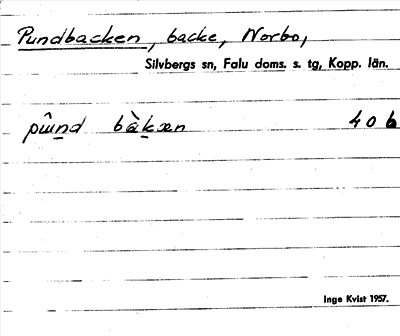 Pundbacken, backe, Norbo,
Silvbergs sn, Falu doms. s. tg, Kopp. län.
pûnd bàkæn 40b
Inge Kvist 1957.